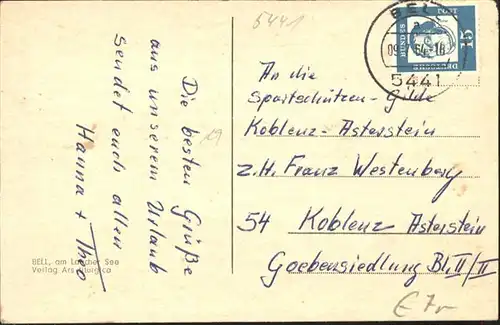 5441
Die besten Grüße
aus unserem Urlaub
sendet euch allen
Hanna + Theo
29
BELL, am Laacher See
Verlag Ars
BELL
a
5441
DEUTSCHE
BUNDES
POST
15
An die
Sportschützen-Gilde
Koblenz-Asterstein
z.H. Franz Westenberg
54 Koblenz Asterstein
Goebensiedlung Bl. II/II
€ 7,-